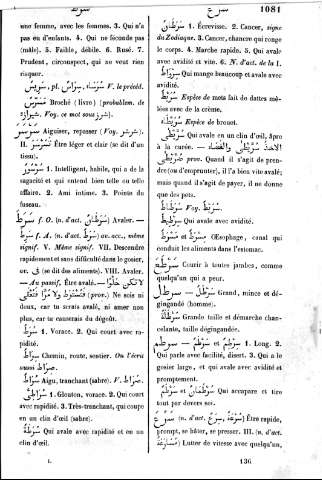 سرع
سوط
1081
une femme, avec les femmes. 3. Qui n'a
pas eu d'enfants. 4. Qui ne féconde pas
(mâle). 5. Faible, débile. 6. Rusé. 7.
Prudent, circonspect, qui ne veut rien
risquer.
V. le précéd.
Broché (livre) [problablem. de
Voy. ce mot sous
Aiguiser, repasser (Voy.
II. Être léger et clair (se dit d'un
tissu).
1. Intelligent, habile, qui a de la
capacité et qui entend bien telle ou telle
affaire. 2. Ami intime. 3. Pointe du
fuseau.
f. O. (n. d'act. سرطان) Avaler. —
سرط f. A. (n. d'act. سرط) av. acc., même
signif. V. Même signif. VII. Descendre
rapidement et sans difficulté dans le gosier,
av. في (se dit des aliments). VIII. Avaler.
— Au passif, Être avalé.
(prov.) Ne sois ni
doux, car tu serais avalé, ni amer non
plus, car tu causerais du dégoût.
1. Vorace. 2. Qui court avec ra-
pidité.
سراط Chemin, route, sentier. On l'écrit
aussi صراط.
سراط Aigu, tranchant (sabre). V. صراط.
1. Glouton, vorace. 2. Qui court
avec rapidité. 3. Très-tranchant, qui coupe
en un clin d'œil (sabre).
سرطة Qui avale avec rapidité et en un
clin d'œil.
سرطان 1. Écrevisse. 2. Cancer, signe
du Zodiaque. 3. Cancer, chancre qui ronge
le corps. 4. Marche rapide. 5. Qui avale
avec avidité et vite. 6. N. d'act. de la I.
Qui mange beaucoup et avale avec
avidité.
Espèce de mets fait de dattes mê-
lées avec de la crème.
Espèce de brouet.
Qui avale en un clin d'œil, âpre
à la curée. —
prov. Quand il s'agit de pren-
dre (ou d'emprunter), il l'a bien vite avalé;
mais quand il s'agit de payer, il ne donne
que des pets.
Voy.
Qui avale avec avidité.
Œsophage, canal qui
conduit les aliments dans l'estomac.
Courir à toutes jambes, comme
quelqu'un qui a peur.
سرطل — Grand, mince et dé-
gingandé (homme).
سرطلة Grande taille et démarche chan-
celante, taille dégingandée.
سرطم — 1. Long. 2.
Qui parle avec facilité, disert. 3. Qui a le
gosier large, et qui avale avec avidité et
promptement.
Qui accapare et tire
tout par devers soi.
سرع (n. d'act. سرعة) Être rapide,
prompt, se hâter, se presser. III. (n. d'act.
مسارعة) Lutter de vitesse avec quelqu'un,
I.
136